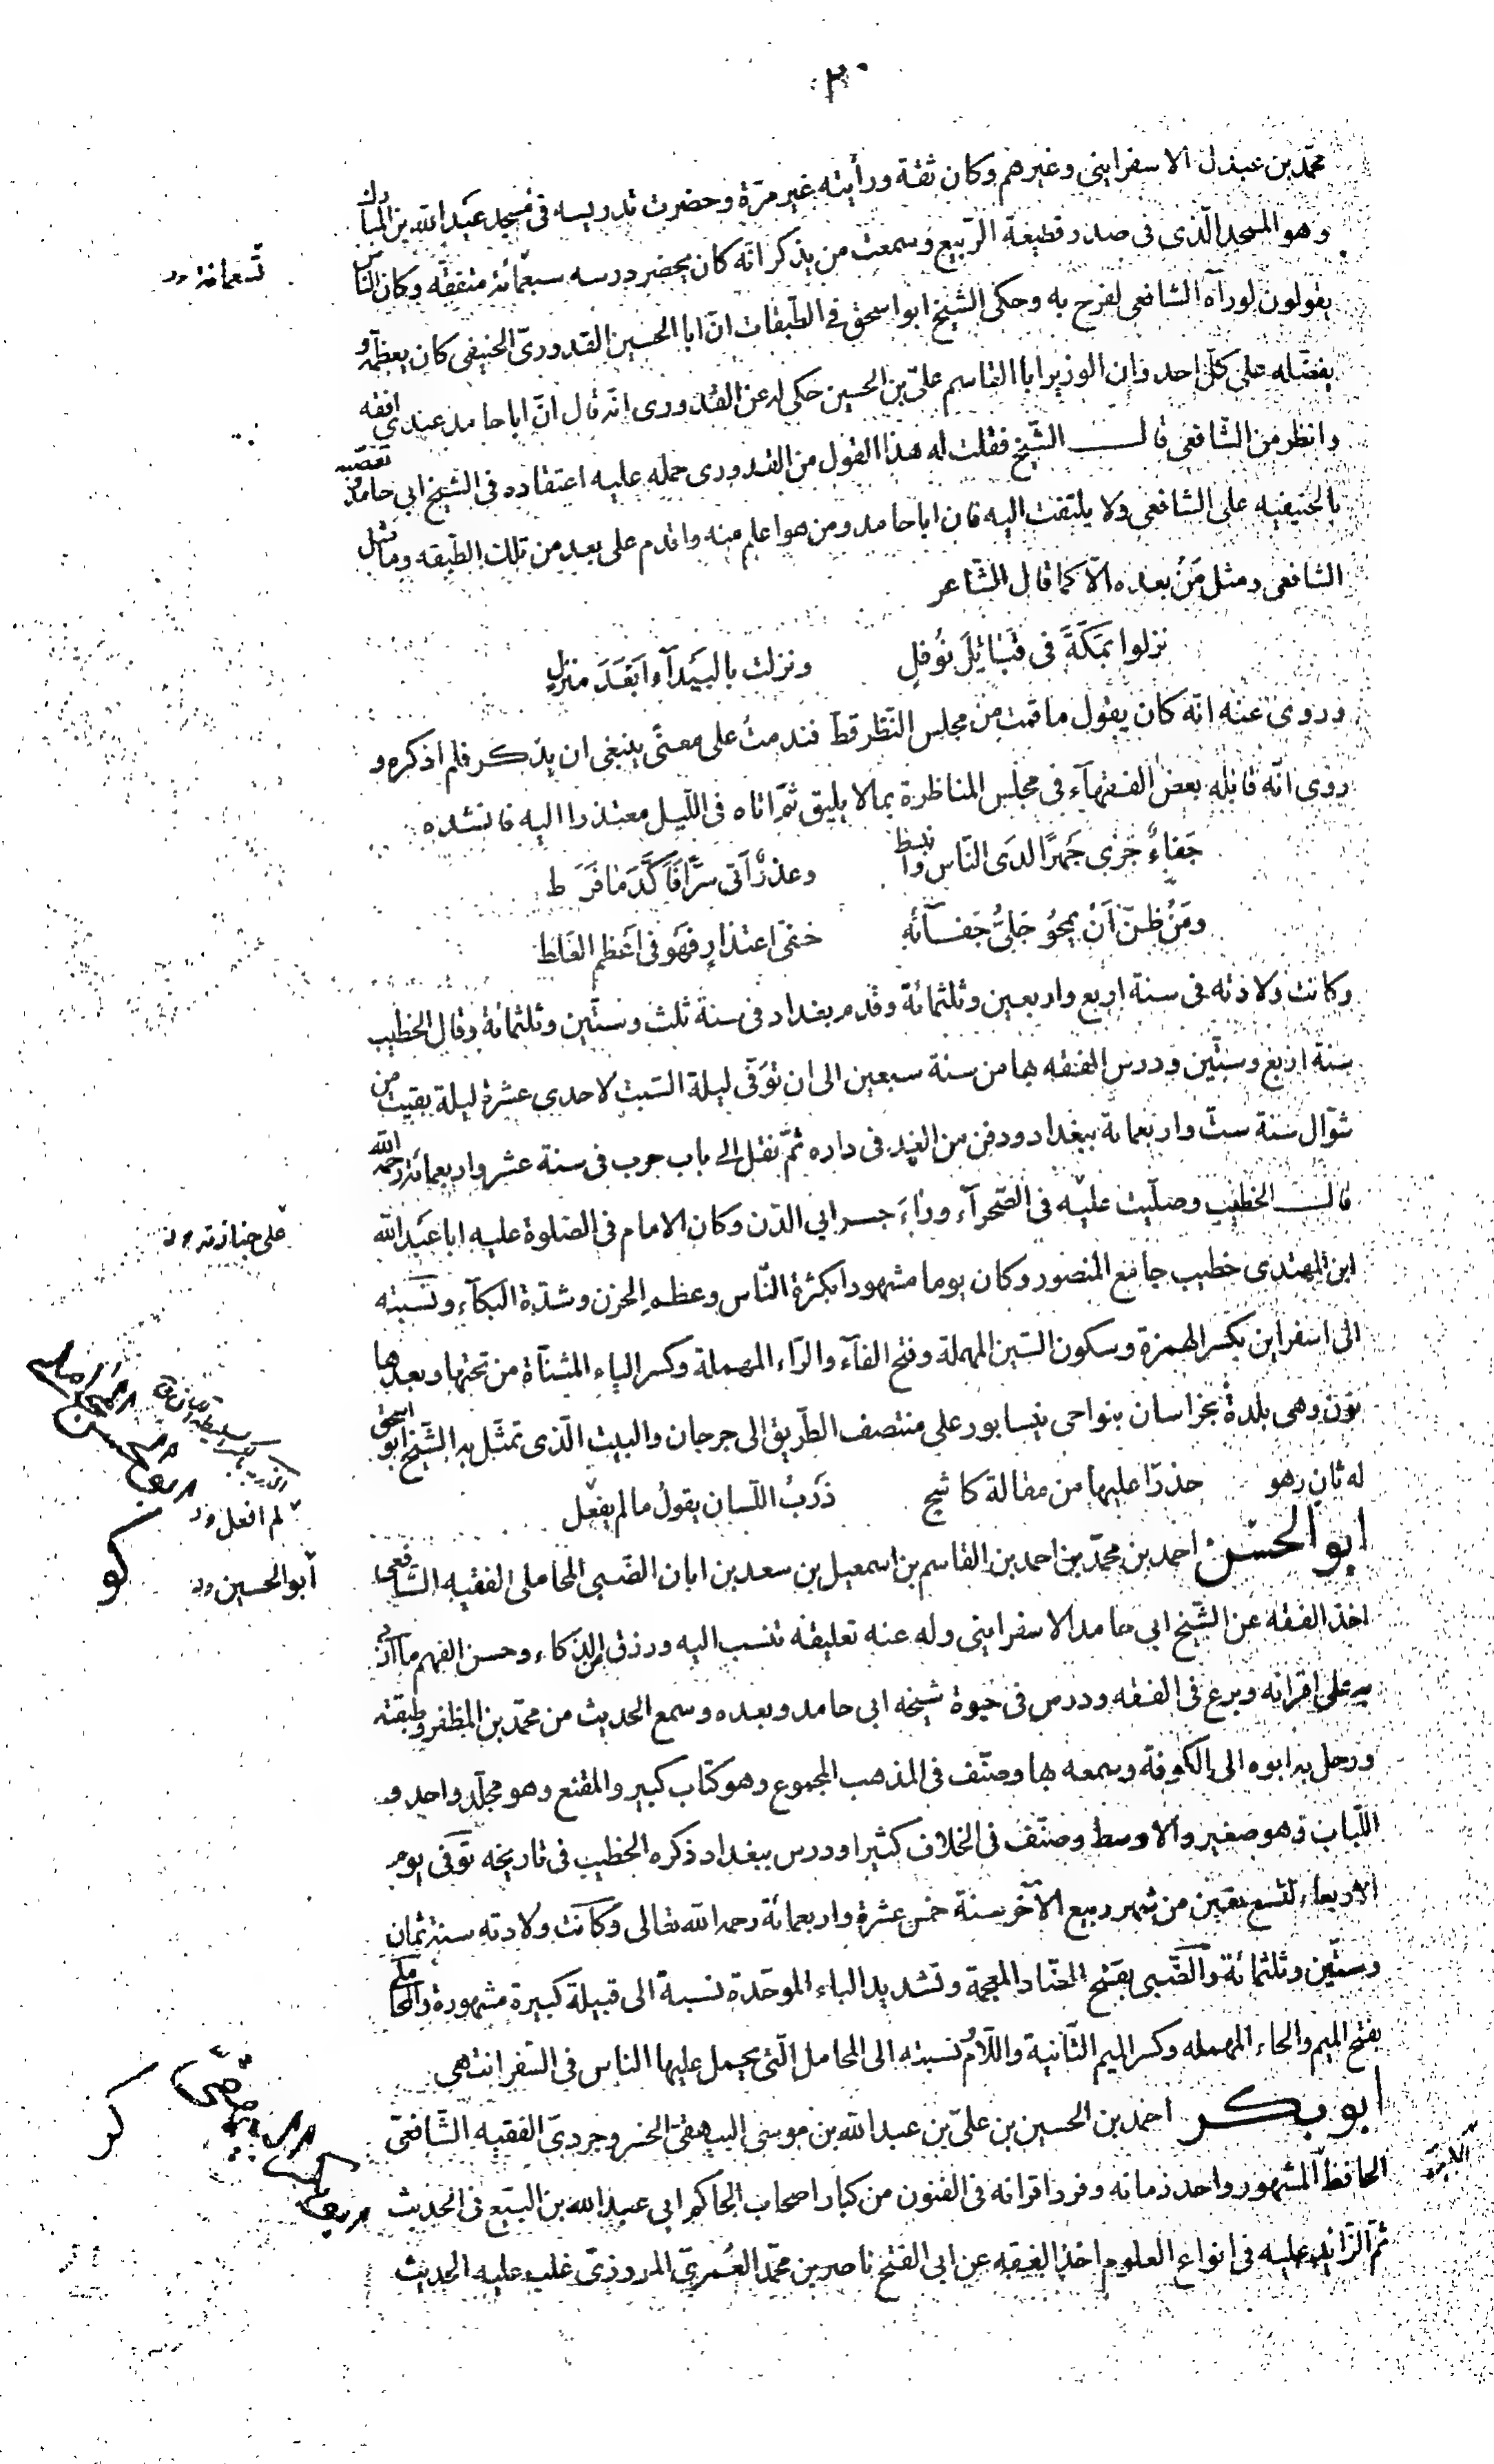 ٢٠
محمّد بن عبدك الاسفراينى وغيرهم وكان ثقة ورأيته غير مرّة وحضرت تدريسه فى مسجد عبد الله بن المبارك
وهو المسجد الّذى فى صدر قطيعة الرّبيع وسمعت من يذكر انّه كان يحضر درسه سبعمائة متفقّه وكان النّاس
يقولون لو رآه الشافعى لفرح به وحكى الشيخ ابو اسحق فى الطّبقات انّ ابا الحسين القدورىّ الحنيفى كان يعظّمه و
يفضّله على كلّ احد وان الوزير ابا القاسم علىّ بن الحسين حكى له عن القدورى انّه قال انّ ابا حامد عندى افقه
وانظر من الشّافعى قال الشّيخ فقلت له هذا القول من القدورى حمله عليه اعتقاده فى الشيخ ابى حامد وتعصّبه
بالحنيفيه على الشافعى ولا يلتفت اليه فان ابا حامد ومن هو اعلم منه واقدم على بعد من تلك الطّبقه وما مثل
الشافعى ومثل مَنْ بعده الّا كما قال الشّاعر
نزلوا بمَكّةَ فى قَبَائِلَ نَوْفلٍ ونزلت بالبَيْدآءِ اَبْعَدَ منزلِ
وروى عنه انّه كان يقول ما قمت من مجلس النّظر قطّ فندمتُ على معنًى ينبغى ان يذكر فلم اذكره و
روى انّه قابله بعض الفقهآء فى مجلس المناظرة بما لا يليق ثمّ اتاه فى اللّيل معتذرا اليه فانشده
جَفاءٌ جَرٰى جَهرًا لدَى النّاس وانبسط وعذرٌ اَتى سرًّا فَاَكَّدَ مَا فَرَط
ومَنْ ظنّ اَنْ يمحُو جَلىُّ جَفآئهِ خفىّ اعتذارٍ فهَو فى اَعْظم الغَلط
وكانت ولادته فى سنة اربع واربعين وثلثمائة وقدم بغداد فى سنة ثلث وستّين وثلثمائة وقال الخطيب
سنة اربع وستّين ودرس الفقه بها من سنة سبعين الى ان توفّى ليلة السّبت لاحدى عشرة ليلة بقيت من
شوّال سنة ستّ واربعمائة ببغداد ودفن من الغد فى داره ثمّ نقل الى باب حرب فى سنة عشر واربعمائة رحمه الله
قال الخطيب وصلّيت عليه فى الصّحرآء ورآءَ جسر ابى الدّن وكان الامام فى الصّلوة عليه ابا عبد الله
ابن المهتدى خطيب جامع المنصور وكان يوما مشهودا بكثرة النّاس وعظم الحزن وشدّة البكآء ونسبته
الى اسفراين بكسر الهمزة وسكون السّين المهملة وفتح الفآء والرّاء المهملة وكسر الياء المثنّاة من تحتها وبعدها
نون وهى بلدةٌ بخراسان بنواحى نيسابور على منتصف الطّريق الى جرجان والبيت الّذى تمثّل به الشّيخ ابو اسحق
له ثانٍ وهو حذرًا عليها من مقالة كاشحٍ ذَرَبُ اللّسان يقولُ ما لم يفعْل
ابو الحسن احمد بن محمّد بن احمد بن القاسم بن اسمعيل بن سعد بن ابان الضّبى المحاملى الفقيه الشّافعى
اخذ الفقه عن الشّيخ ابى حامد الاسفراينى وله عنه تعليقه تنسب اليه ورزق من الذّكاء وحسن الفهم ما اربى
به على اقرانه وبرع فى الفقه ودرس فى حيوة شيخه ابى حامد وبعده وسمع الحديث من محمّد بن المظفر وطبقته
ورحل به ابوه الى الكوفة وسمعه بها وصنّف فى المذهب المجموع وهو كتاب كبير والمقنع وهو مجلّد واحد و
اللّباب وهو صغير والاوسط وصنّف فى الخلاف كثيرا ودرس ببغداد ذكره الخطيب فى تاريخه توفّى يوم
الاربعاء لتسع بقين من شهر ربيع الآخر سنة خمس عشرة واربعمائة رحمه الله تعالى وكانت ولادته سنة ثمان
وستّين وثلثمائة والضّبى بفتح الضاد المعجمة وتشديد الباء الموحّدة نسبة الى قبيلة كبيرة مشهورة والمحاملى
بفتح الميم والحاء المهمله وكسر الميم الثّانية واللّام نسبته الى المحامل الّتى يحمل عليها الناس فى السّفر انتهى
ابو بكر احمد بن الحسين بن علىّ بن عبد الله بن موسى البيهقىّ الخسروجردىّ الفقيه الشّافعىّ
الحافظ المشهور واحد زمانه وفرد اقرانه فى الفنون من كبار اصحاب الحاكم ابى عبد الله بن البيّع فى الحديث
ثمّ الزّائد عليه فى انواع العلوم اخذ الفقه عن ابى الفتح ناصر بن محمّد العُمرىّ المروزىّ غلب عليه الحديث
على جنازته
لم افعل
ابو الحسين
كو